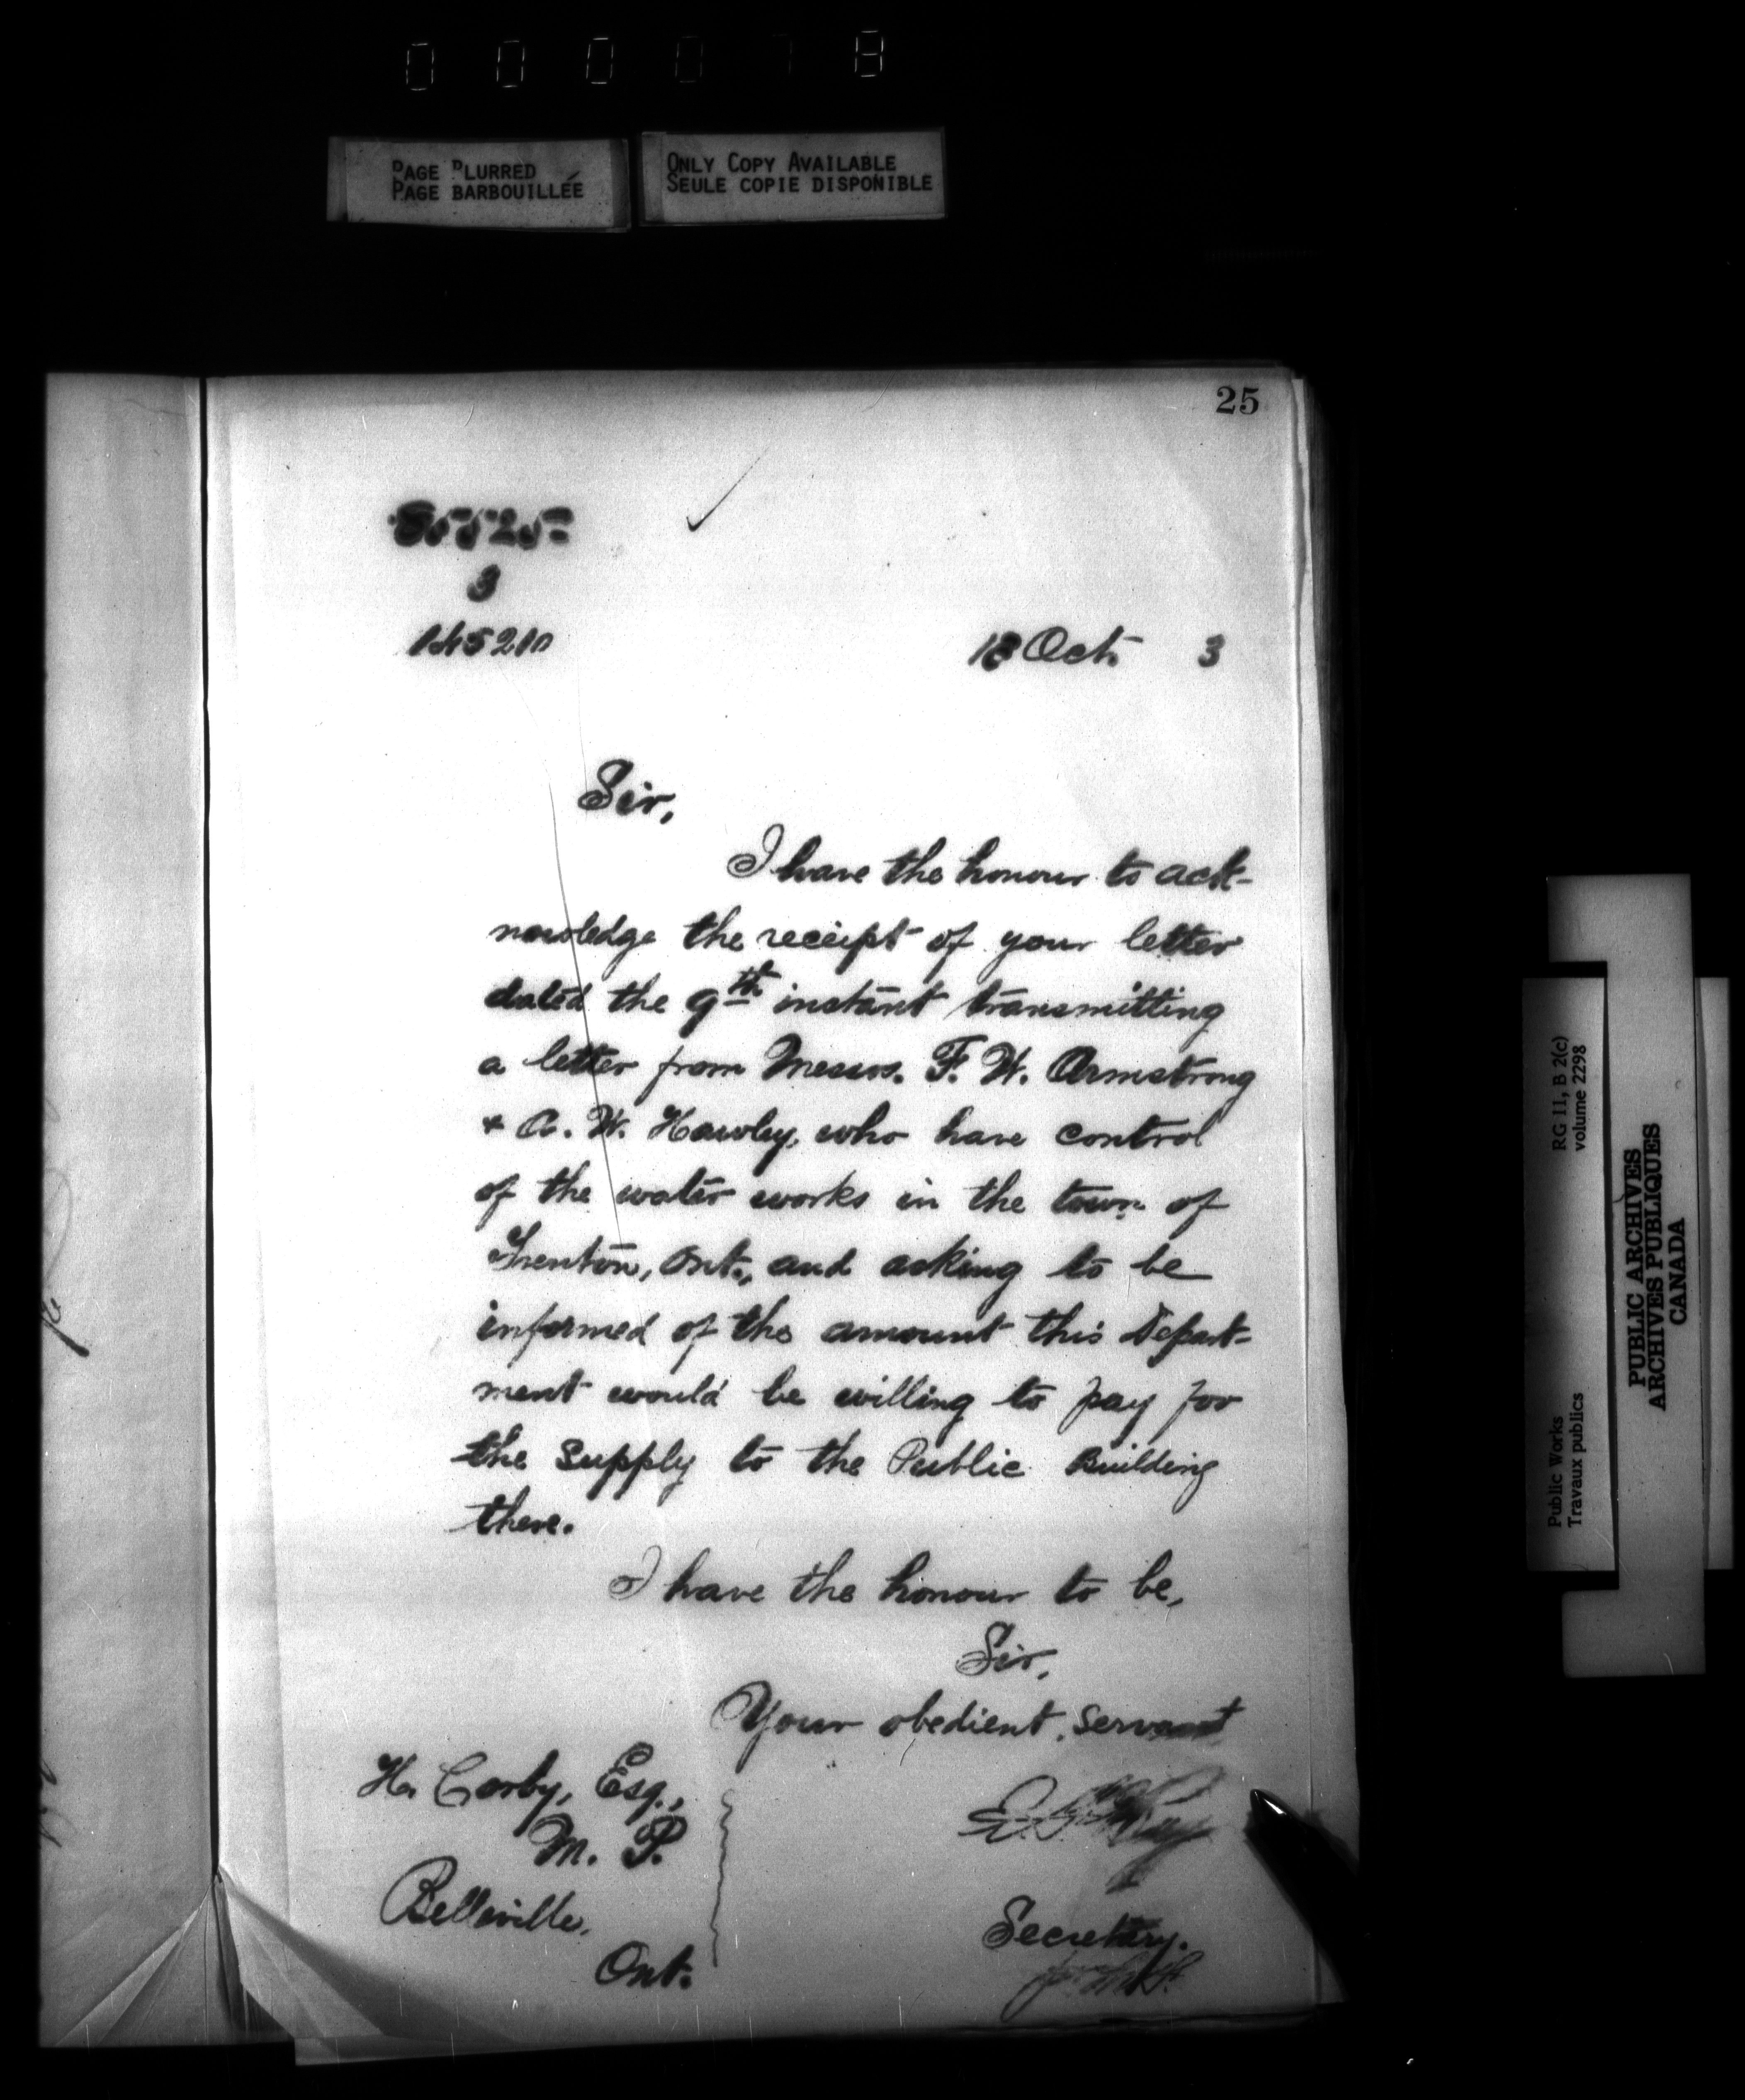 PAGE BLURRED
PAGE BARBOUILLÉE
ONLY COPY AVAILABLE
SEULE COPIE DISPONIBLE
25
3
18 Oct. 3
Sir,
I have the honour to ack-
nowledge the receipt of your letter
dated the 9th instant transmitting
a letter from Messrs. F. W. Armstrong
& A. W. Hawley, who have control
of the water works in the town of
Trenton, Ont., and asking to be
informed of the amount this Depart-
ment would be willing to pay for
the supply to the Public Building
there.
I have the honour to be,
Sir,
Your obedient servant
H. Corby, Esq.,
M. P.
Belleville,
Ont.
Secretary.
RG 11, B 2(c)
volume 2298
Public Works
Travaux publics
PUBLIC ARCHIVES
ARCHIVES PUBLIQUES
CANADA